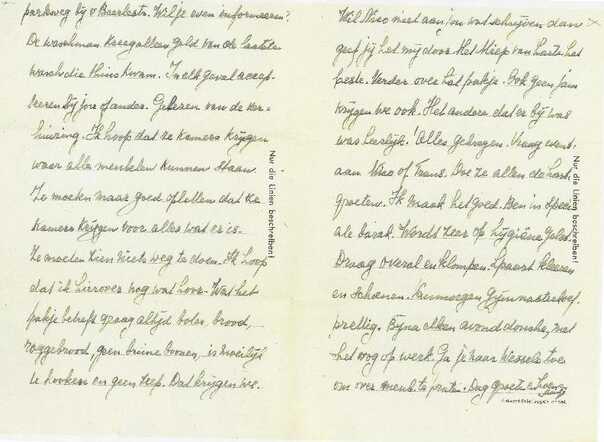 parkweg bij v Baerlestr. Wil je even informeeren?
De waschman kreeg allen geld van de laatste
wasch die thuis kwam. In elk geval accep-
teeren bij jou of anders. Gelezen van de ver-
huizing. Ik hoop dat ze kamers krijgen
waar alle meubelen kunnen staan.
Ze moeten maar goed opletten dat ze
kamers krijgen voor alles wat er is.
Ze moeten zien niets weg te doen. Ik hoop
dat ik hierover nog wat hoor. Wat het
pakje betreft graag altijd boter, brood,
roggebrood, geen bruine boonen, is moeilijk
te kooken en geen zeep. Dat krijgen we.
Nur die Linien beschreiben!
Wil Nico niet aan jou wat schrijven dan
geef jij het mij door. Het Miep van Harte het
beste. Verder over het pakje. Ook geen jam
krijgen we ook. Het andere dat er bij was
was heerlijk! Alles gekregen. Vraag event.
aan Nico of Frans. Doe ze allen de hart.
groeten. Ik maak het goed. Ben in speci-
ale barak. Wordt zeer op hygiëne gelet.
Draag overal en klompen. Spaart kleeren
en schoenen. 's morgen Gymnastiek of.
prettig. Bijna elken avond douche, met
het oog op werk. Ga je naar Wessels toe
om over meub. te praten. Dag groeten
Nur die Linien beschreiben!